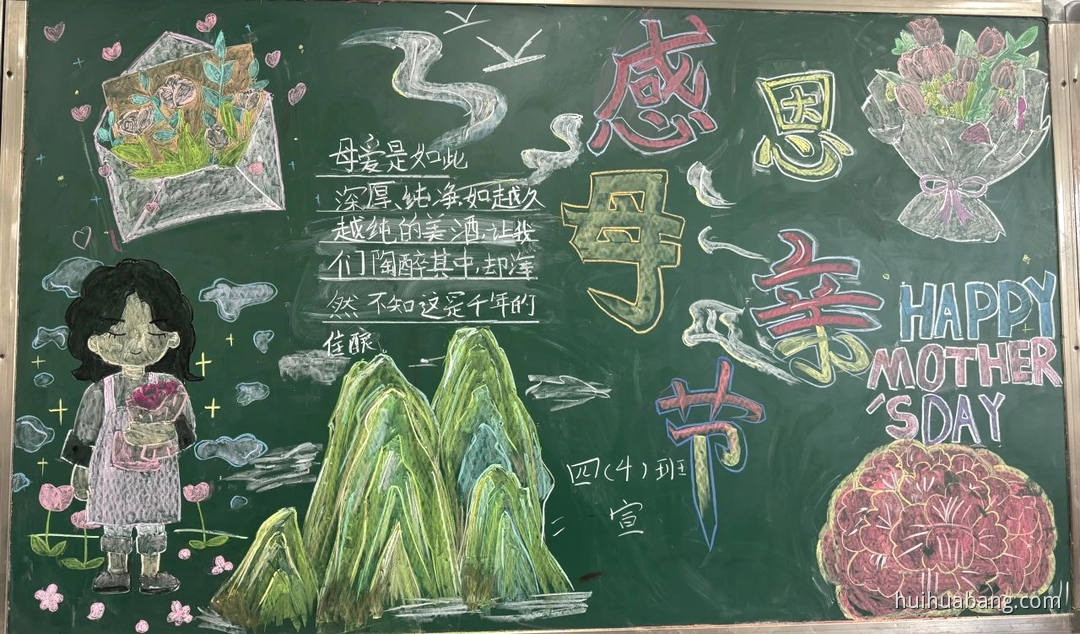 感恩
母亲节
母爱是如此
深厚、纯净,如越久
越纯的美酒,让我
们陶醉其中,却浑
然不知这是千年的
佳酿
HAPPY
MOTHER
'SDAY
四(4)班
宣
huihuabang.com